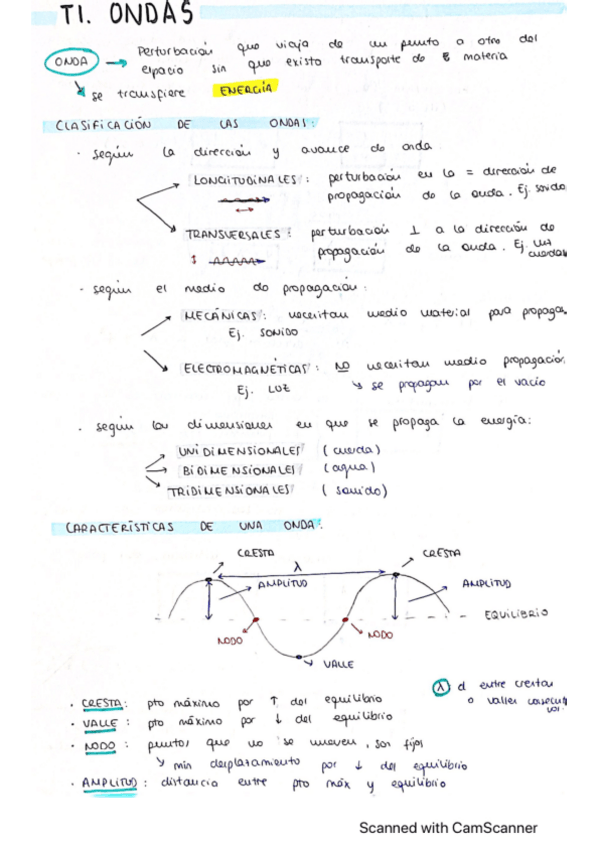 T1. ONDAS
ONDA → Perturbación que viaja de un punto a otro del
espacio sin que exista transporte de materia
se transfiere ENERGÍA
CLASIFICACIÓN DE LAS ONDAS:
· según la dirección y avance de onda
LONGITUDINALES: perturbación en la = dirección de
propagación de la onda. Ej. sonido
TRANSVERSALES: perturbación ⊥ a la dirección de
propagación de la onda. Ej.
cuerdas
· según el medio de propagación:
MECÁNICAS: necesitan medio material para propaga
Ej. SONIDO
ELECTROMAGNÉTICAS: NO necesitan medio propagación
Ej. LUZ ↳ se propagan por el vacío
· según las dimensiones en que se propaga la energía:
UNIDIMENSIONALES (cuerda)
BIDIMENSIONALES (agua)
TRIDIMENSIONALES (sonido)
CARACTERÍSTICAS DE UNA ONDA:
CRESTA CRESTA
λ
AMPLITUD AMPLITUD
EQUILIBRIO
NODO NODO
VALLE
λ d entre crestas
o valles
· CRESTA: pto máximo por ↑ del equilibrio
· VALLE: pto máximo por ↓ del equilibrio
· NODO: puntos que no se mueven, son fijos
↳ min desplazamiento por ↓ del equilibrio
· AMPLITUD: distancia entre pto máx y equilibrio
Scanned with CamScanner